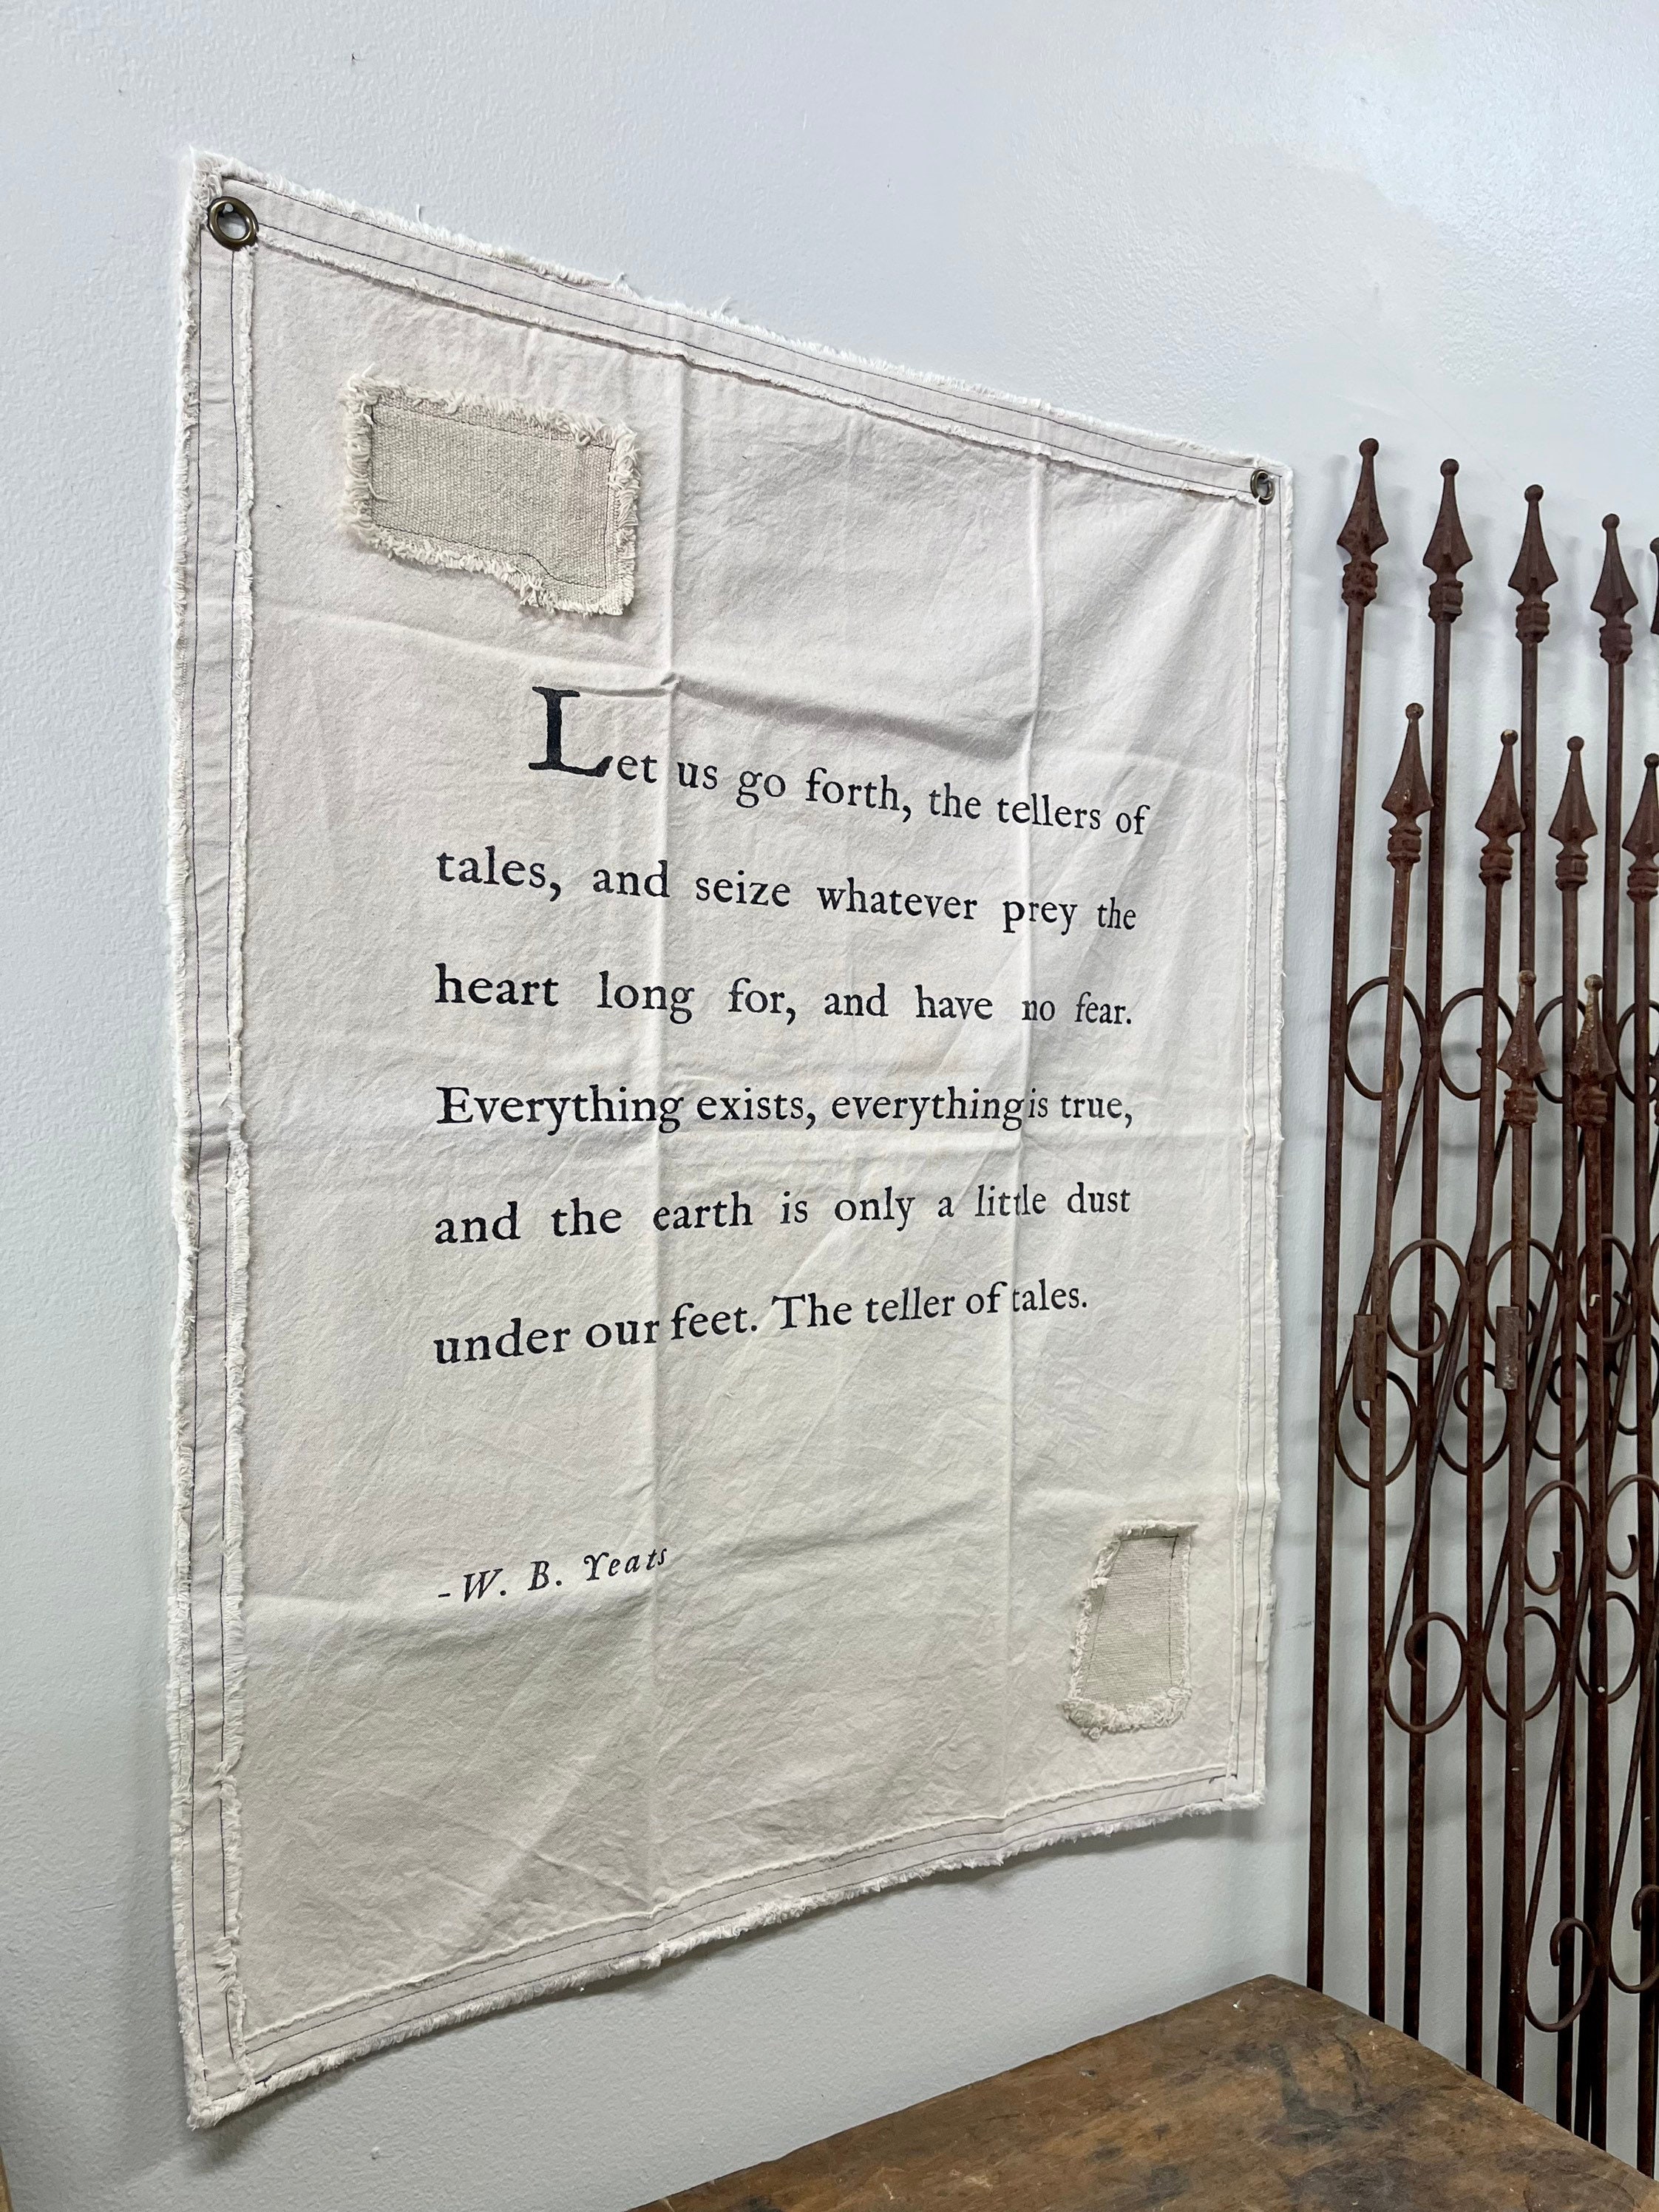 Let us go forth, the tellers of
tales, and seize whatever prey the
heart long for, and have no fear.
Everything exists, everything is true,
and the earth is only a little dust
under our feet. The teller of tales.
-W. B. Yeats